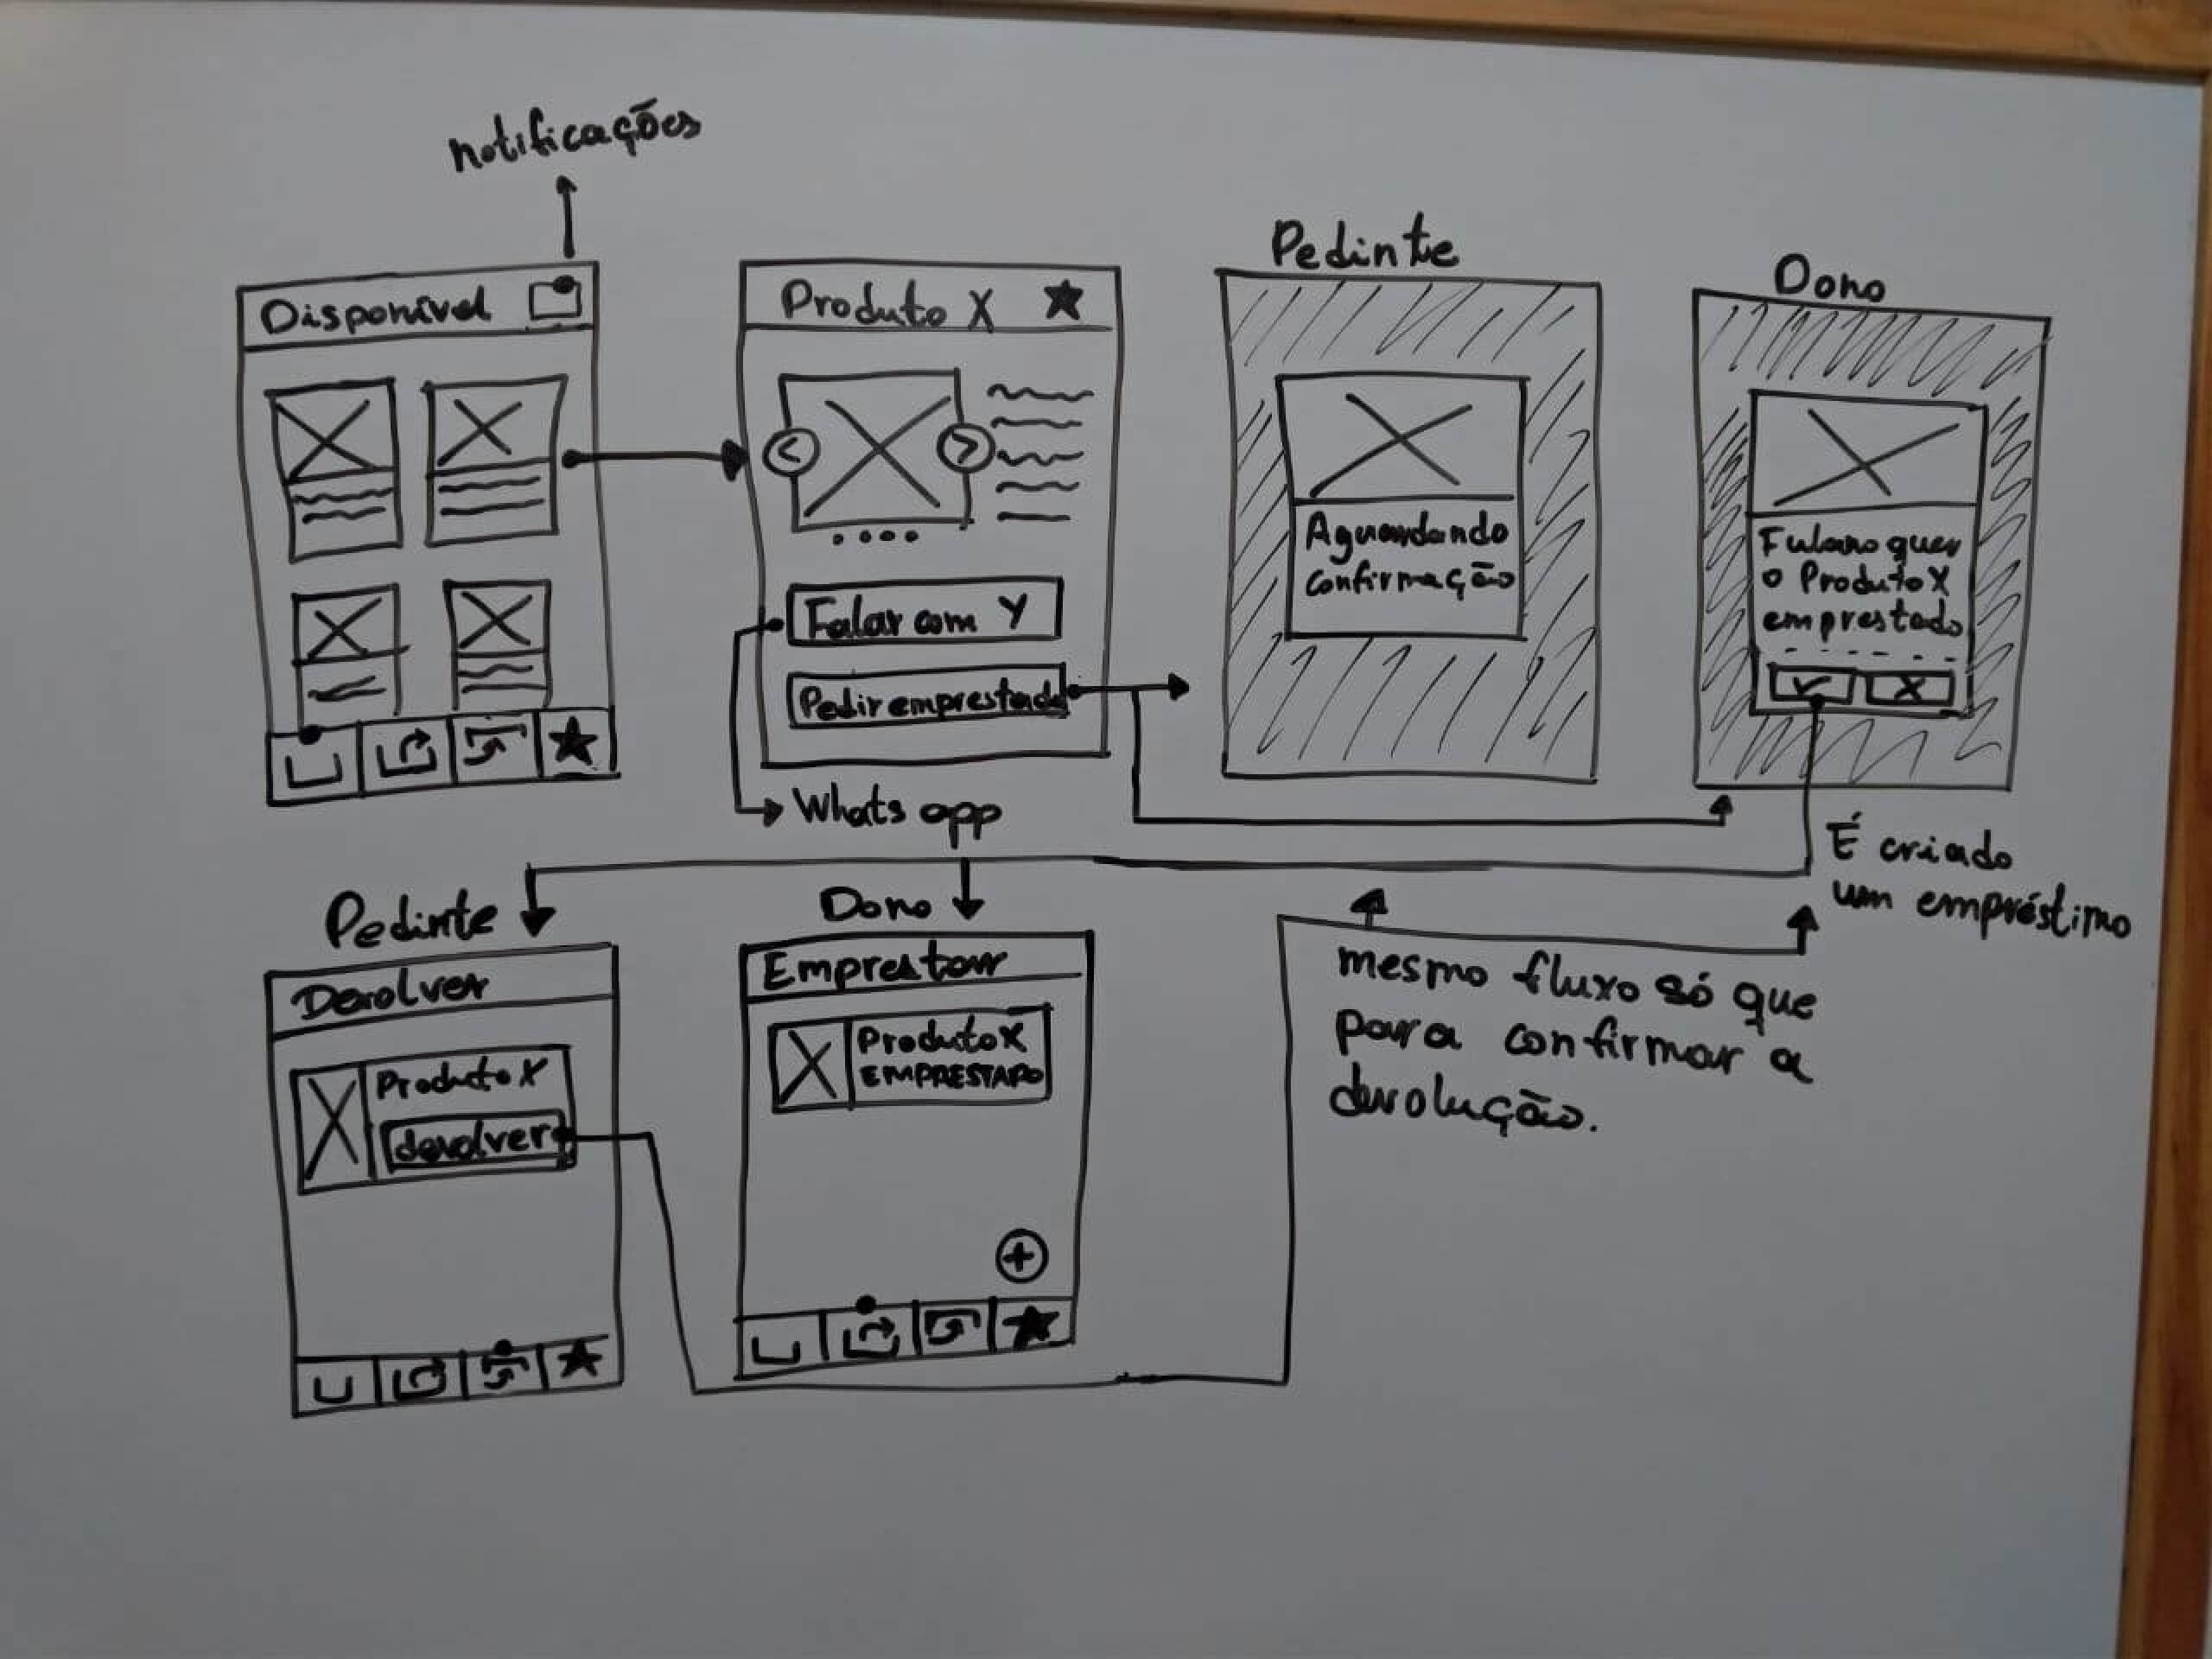 notificações
Disponível
Produto X
Falar com Y
Pedir emprestado
Whats app
Pedinte
Aguardando
confirmação
Dono
Fulano quer
o Produto X
emprestado
É criado
um empréstimo
Pedinte
Devolver
Produto X
devolver
Dono
Emprestar
Produto X
EMPRESTADO
mesmo fluxo só que
para confirmar a
devolução.